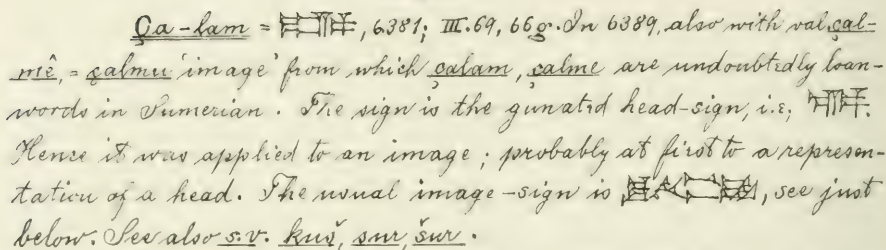 Ça-lam = , 6381; III. 69, 66g. In 6389, also with val. çal-
mê, = çalmu 'image' from which çalam, çalme are undoubtedly loan-
words in Sumerian. The sign is the gunated head-sign, i.e;
Hence it was applied to an image; probably at first to a represen-
tation of a head. The usual image-sign is , see just
below. See also s.v. kuš, sur, šur.